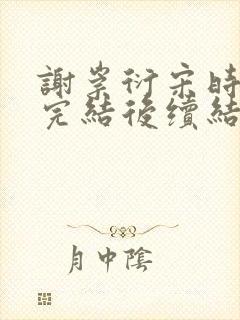 謝崇衍宋時
完結後續結
月中陰